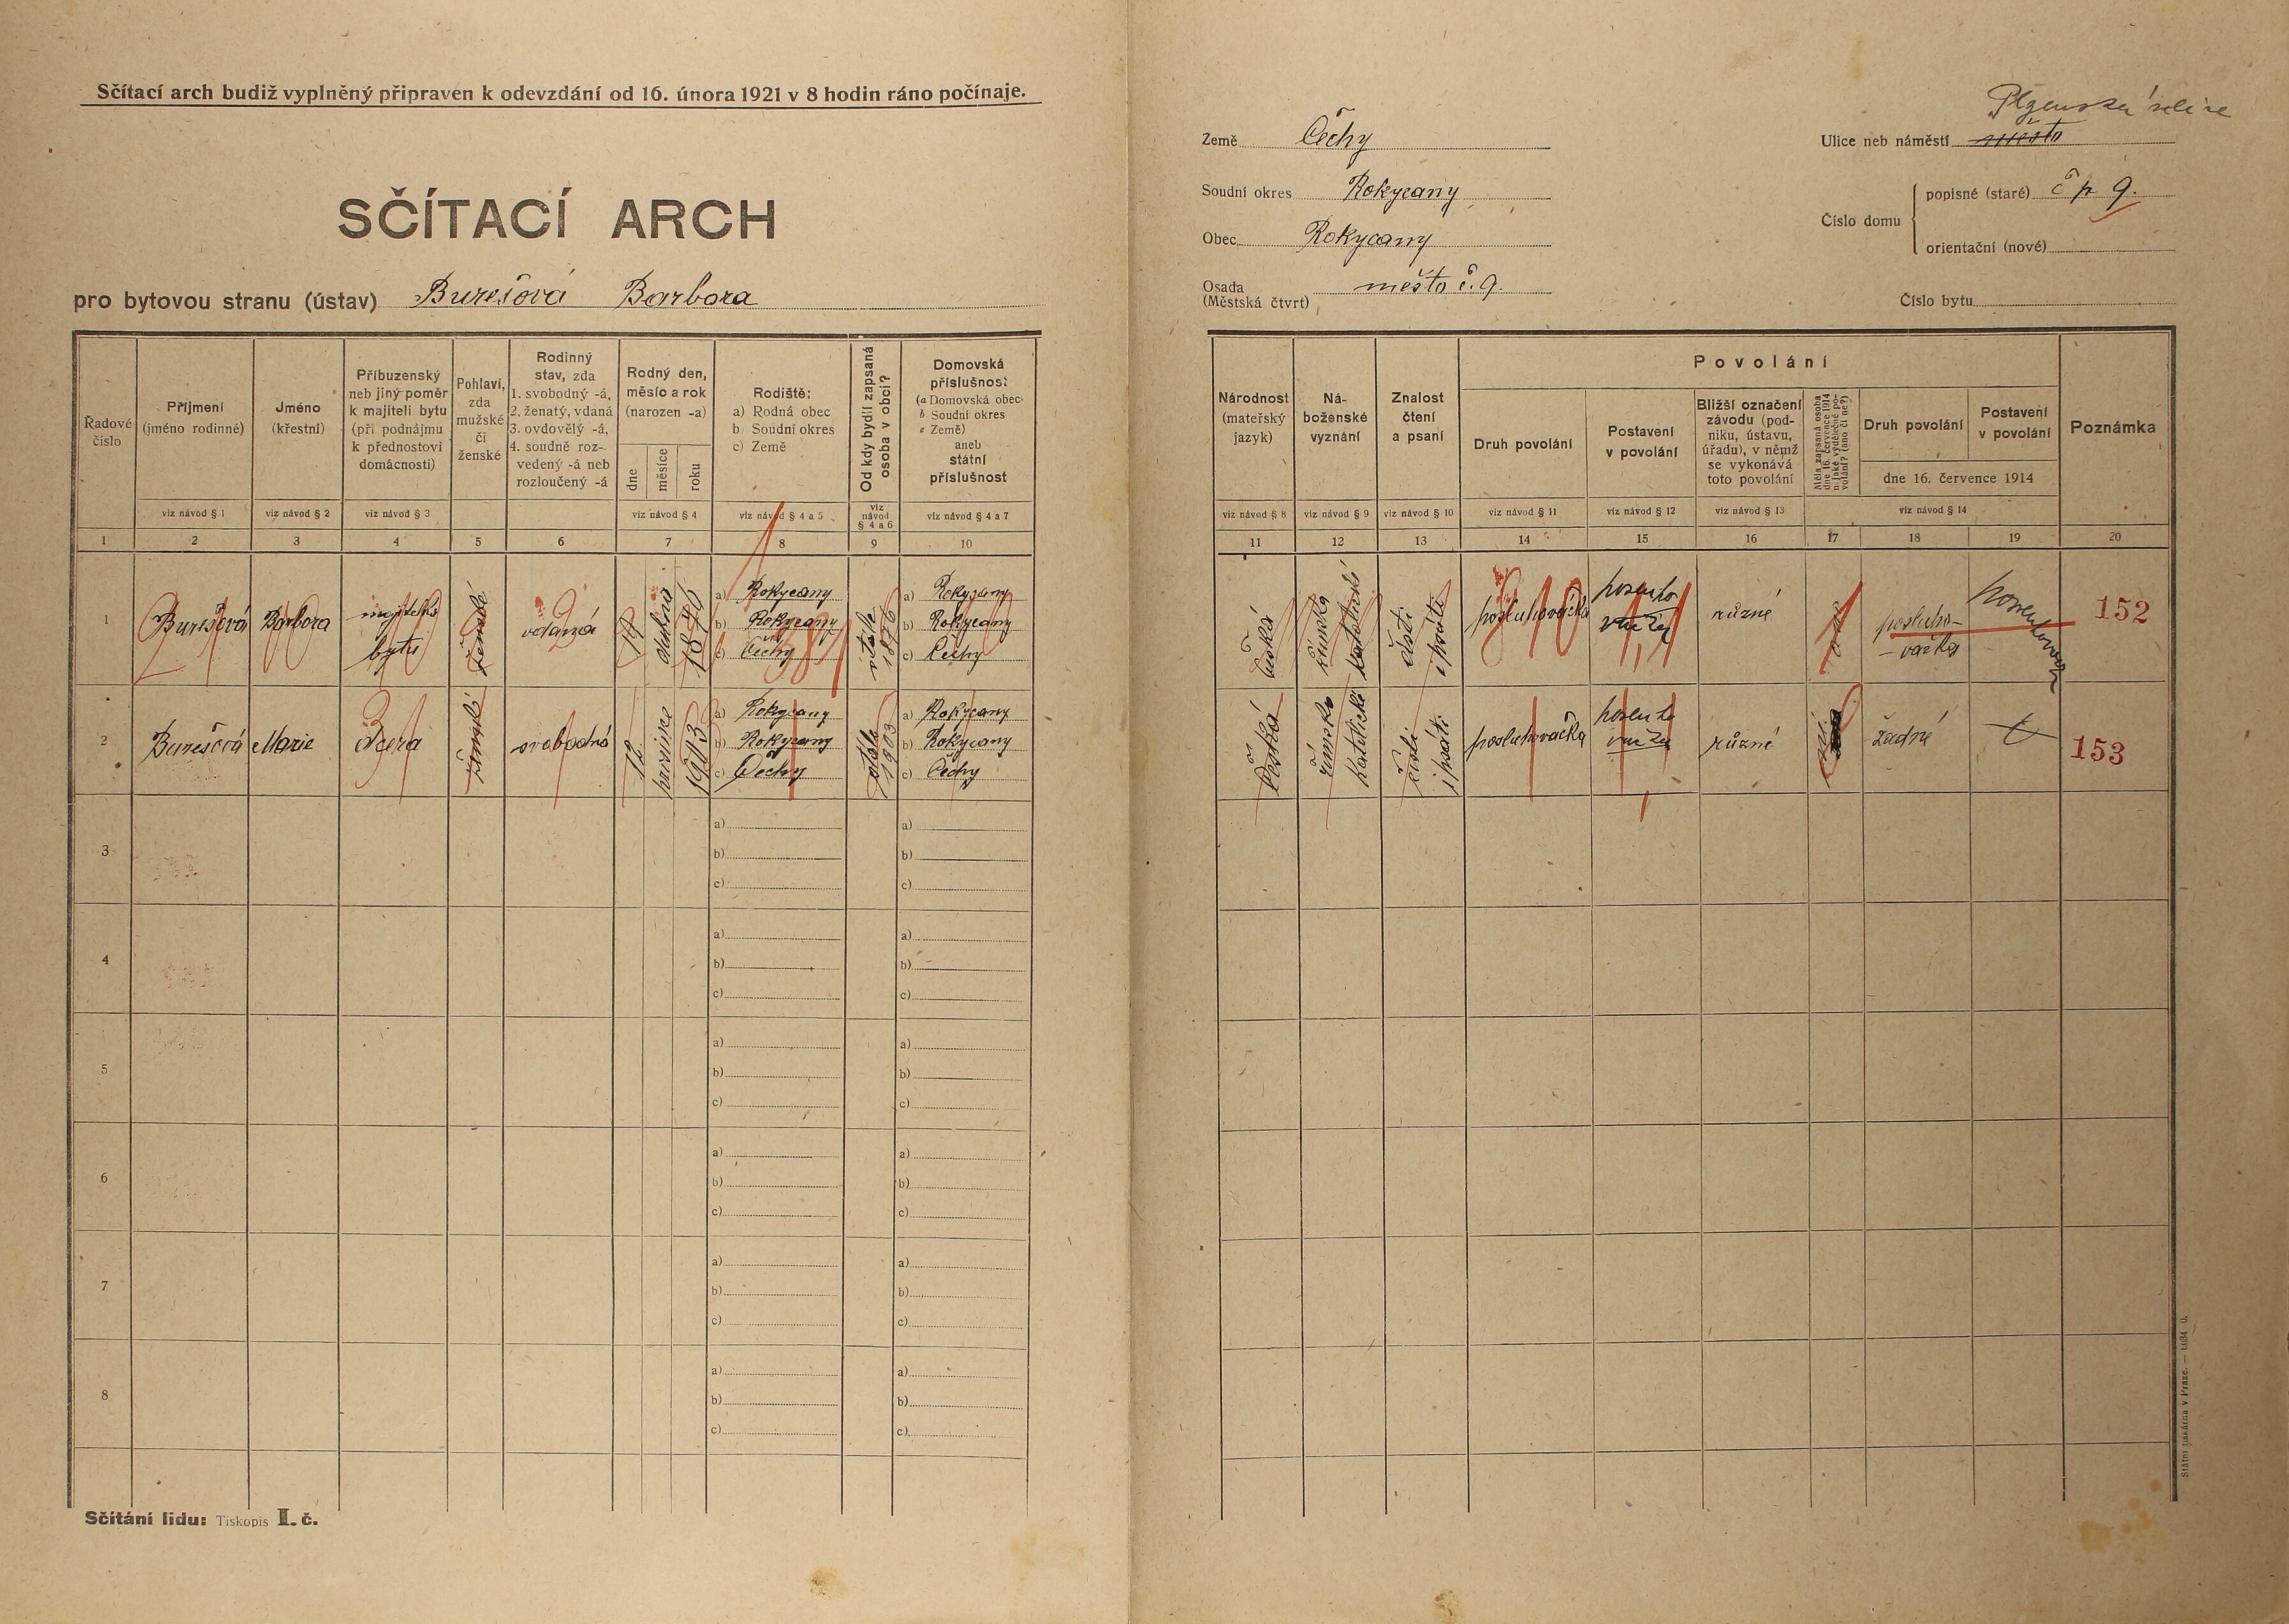 Sčítací arch budiž vyplněný připraven k odevzdání od 16. února 1921 v 8 hodin ráno počínaje.
SČÍTACÍ ARCH
pro bytovou stranu (ústav) Burešová Barbora
Řadové číslo
Příjmení (jméno rodinné)
Jméno (křestní)
Příbuzenský neb jiný poměr k majiteli bytu (při podnájmu k přednostovi domácnosti)
Pohlaví, zda mužské či ženské
Rodinný stav, zda
1. svobodný -á,
2. ženatý, vdaná
3. ovdovělý -á,
4. soudně rozvedený -á neb rozloučený -á
Rodný den, měsíc a rok (narozen -a)
dne
měsíce
roku
Rodiště:
a) Rodná obec
b) Soudní okres
c) Země
Od kdy bydlí zapsaná osoba v obci?
Domovská příslušnost
(a Domovská obec
b Soudní okres
c Země)
aneb
státní
příslušnost
viz návod § 1
viz návod § 2
viz návod § 3
viz návod § 4
viz návod § 4 a 5
viz návod § 4 a 6
viz návod § 4 a 7
1 2 3 4 5 6 7 8 9 10
1 Burešová Barbora majitelka bytu ženské vdaná 19 dubna 1876
a) Rokycany
b) Rokycany
c) Čechy
stále 1876
a) Rokycany
b) Rokycany
c) Čechy
2 Burešová Marie dcera ženské svobodná 12 prosince 1903
a) Rokycany
b) Rokycany
c) Čechy
stále 1903
a) Rokycany
b) Rokycany
c) Čechy
3
a) a)
b) b)
c) c)
4
a) a)
b) b)
c) c)
5
a) a)
b) b)
c) c)
6
a) a)
b) b)
c) c)
7
a) a)
b) b)
c) c)
8
a) a)
b) b)
c) c)
Sčítání lidu: Tiskopis I. č.
Země Čechy
Soudní okres Rokycany
Obec Rokycany
Osada (Městská čtvrt) město č. 9.
Plzenská ulice
Ulice neb náměstí město
Číslo domu
popisné (staré) č p 9.
orientační (nové)
Číslo bytu
Národnost (mateřský jazyk)
Náboženské vyznání
Znalost čtení a psaní
Povolání
Druh povolání
Postavení v povolání
Bližší označení závodu (podniku, ústavu, úřadu), v němž se vykonává toto povolání
Měla zapsaná osoba dne 16. července 1914 n. jaké výdělečné povolání? (ano či ne?)
Druh povolání
Postavení v povolání
dne 16. července 1914
Poznámka
viz návod § 8
viz návod § 9
viz návod § 10
viz návod § 11
viz návod § 12
viz návod § 13
viz návod § 14
11 12 13 14 15 16 17 18 19 20
česká římsko katolické čísti i psáti posluhovačka posluhovačka různé ano posluho-
-vačka
posluhovačka
152
česká římsko katolické čísti i psáti posluhovačka posluhovačka různé žádné
153
Státní tiskárna v Praze.